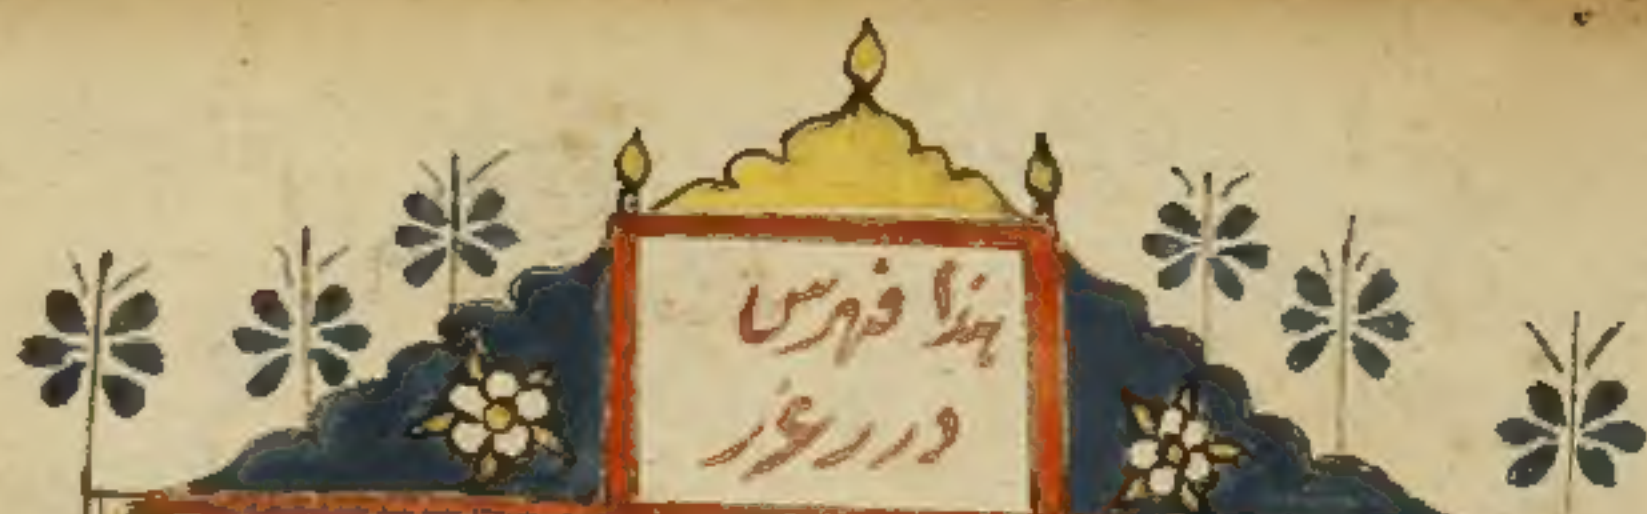 هذا فهرس
درر غرر